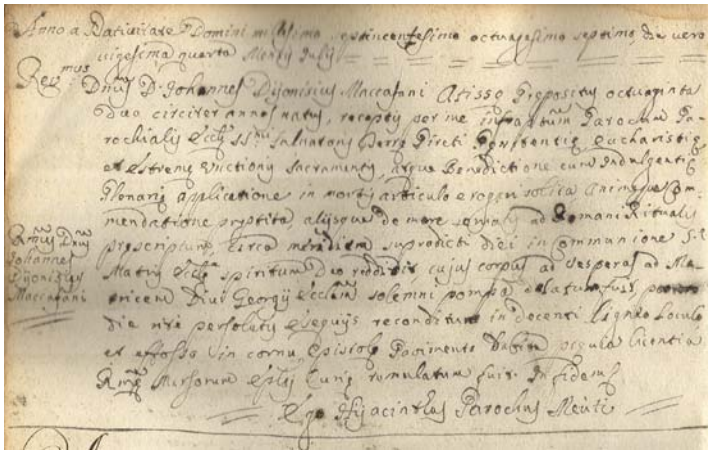 Anno a Nativitate Domini millesimo septincentesimo octuagesimo septimo, die vero
vigesima quarta Mensis Julij
Rev.mus Dnus D. Johannes Dijonisius Maccafani Prepositus octuaginta
duo circiter annos natus, receptis per me infrattum Parocum Pa-
rochialis Eccl SS.mi Salvatoris Petre Pireti Penitentie, Eucharistie
et Estreme Unctionis Sacramentis, atque Benedictione cum Indulgentie
Plenarie applicatione in mortis articulo erogari solita Animeque Com-
mendatione alijsque de more servatis ad Romani Ritualis
prescriptum circa meridiem supradicti diei in communione S.
Matris Eccle spiritum Deo reddidit, cujus corpus ad vesperas ad Ma-
tricem Divi Georgij Ecclam solemni pompa delatum fuit,
die persolutis Esequijs reconditum in decenti ligneo loculo
et effosso in cornu Epistole Pavimento licentia
Marsorum Epi tumulatum fuit. In fidem
Ego Hijacinthus Parochus Meuti
Rmus Dnus
Johannes
Dijonisius
Maccafani